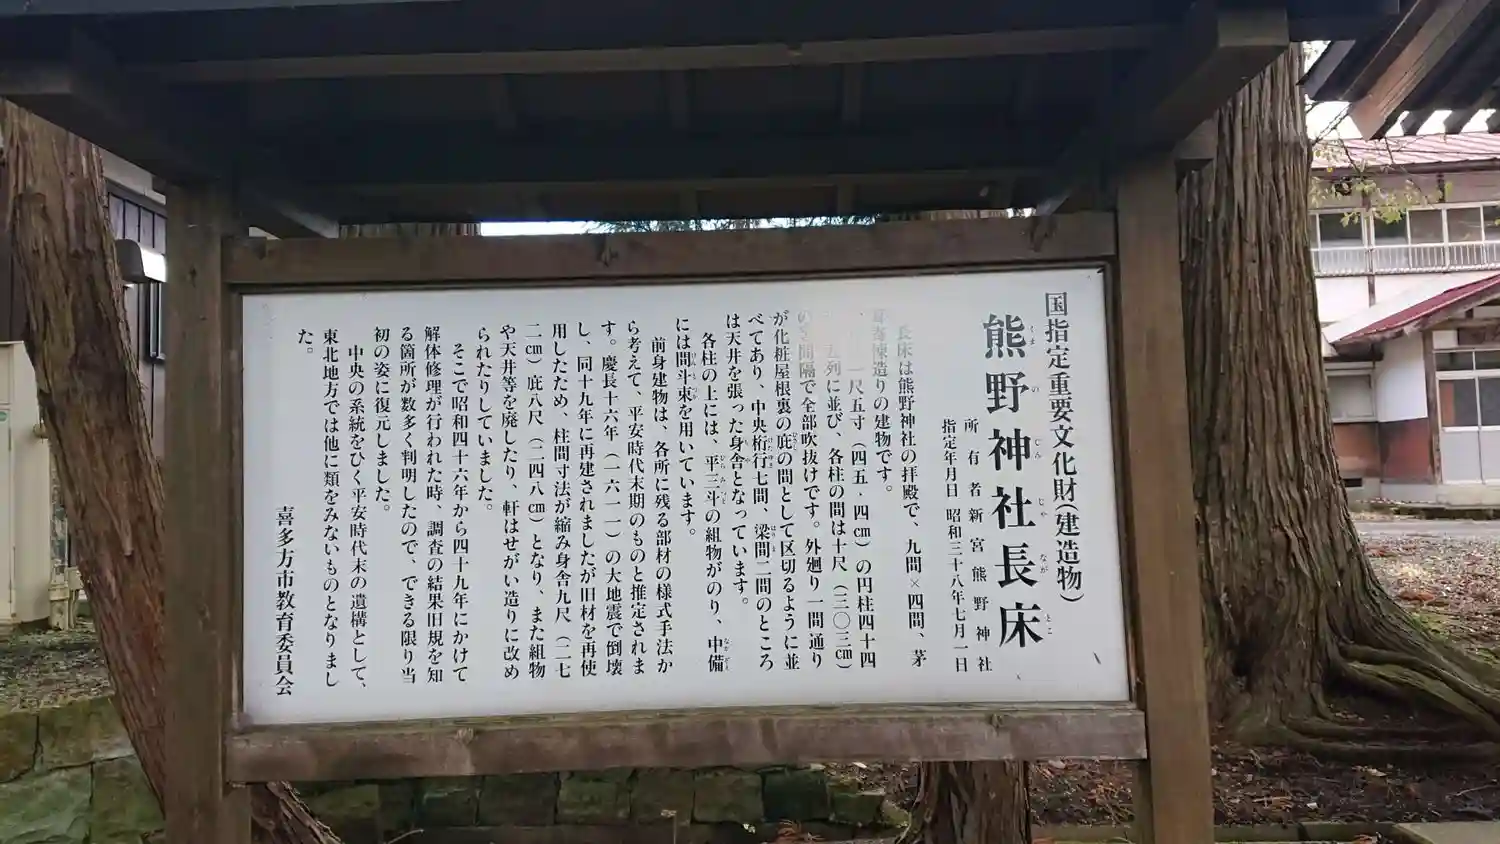 国指定重要文化財(建造物)
熊野神社長床
くまのじんじゃながとこ
所有者 新宮熊野神社
指定年月日 昭和三十八年七月一日
長床は熊野神社の拝殿で、九間×四間、茅
寄棟造りの建物です。
一尺五寸(四五・四㎝)の円柱四十四
列に並び、各柱の間は十尺(三〇三㎝)
の等間隔で全部吹抜けです。外廻り一間通り
が化粧屋根裏の庇の間として区切るように並
べてあり、中央桁行七間、梁間二間のところ
は天井を張った身舎となっています。
各柱の上には、平三斗の組物がのり、中備
には間斗束を用いています。
前身建物は、各所に残る部材の様式手法か
ら考えて、平安時代末期のものと推定されま
す。慶長十六年(一六一一)の大地震で倒壊
し、同十九年に再建されましたが旧材を再使
用したため、柱間寸法が縮み身舎九尺(二七
二㎝)庇八尺(二四八㎝)となり、また組物
や天井等を廃したり、軒はせがい造りに改め
られたりしていました。
そこで昭和四十六年から四十九年にかけて
解体修理が行われた時、調査の結果旧規を知
る箇所が数多く判明したので、できる限り当
初の姿に復元しました。
中央の系統をひく平安時代末の遺構として、
東北地方では他に類をみないものとなりまし
た。
喜多方市教育委員会